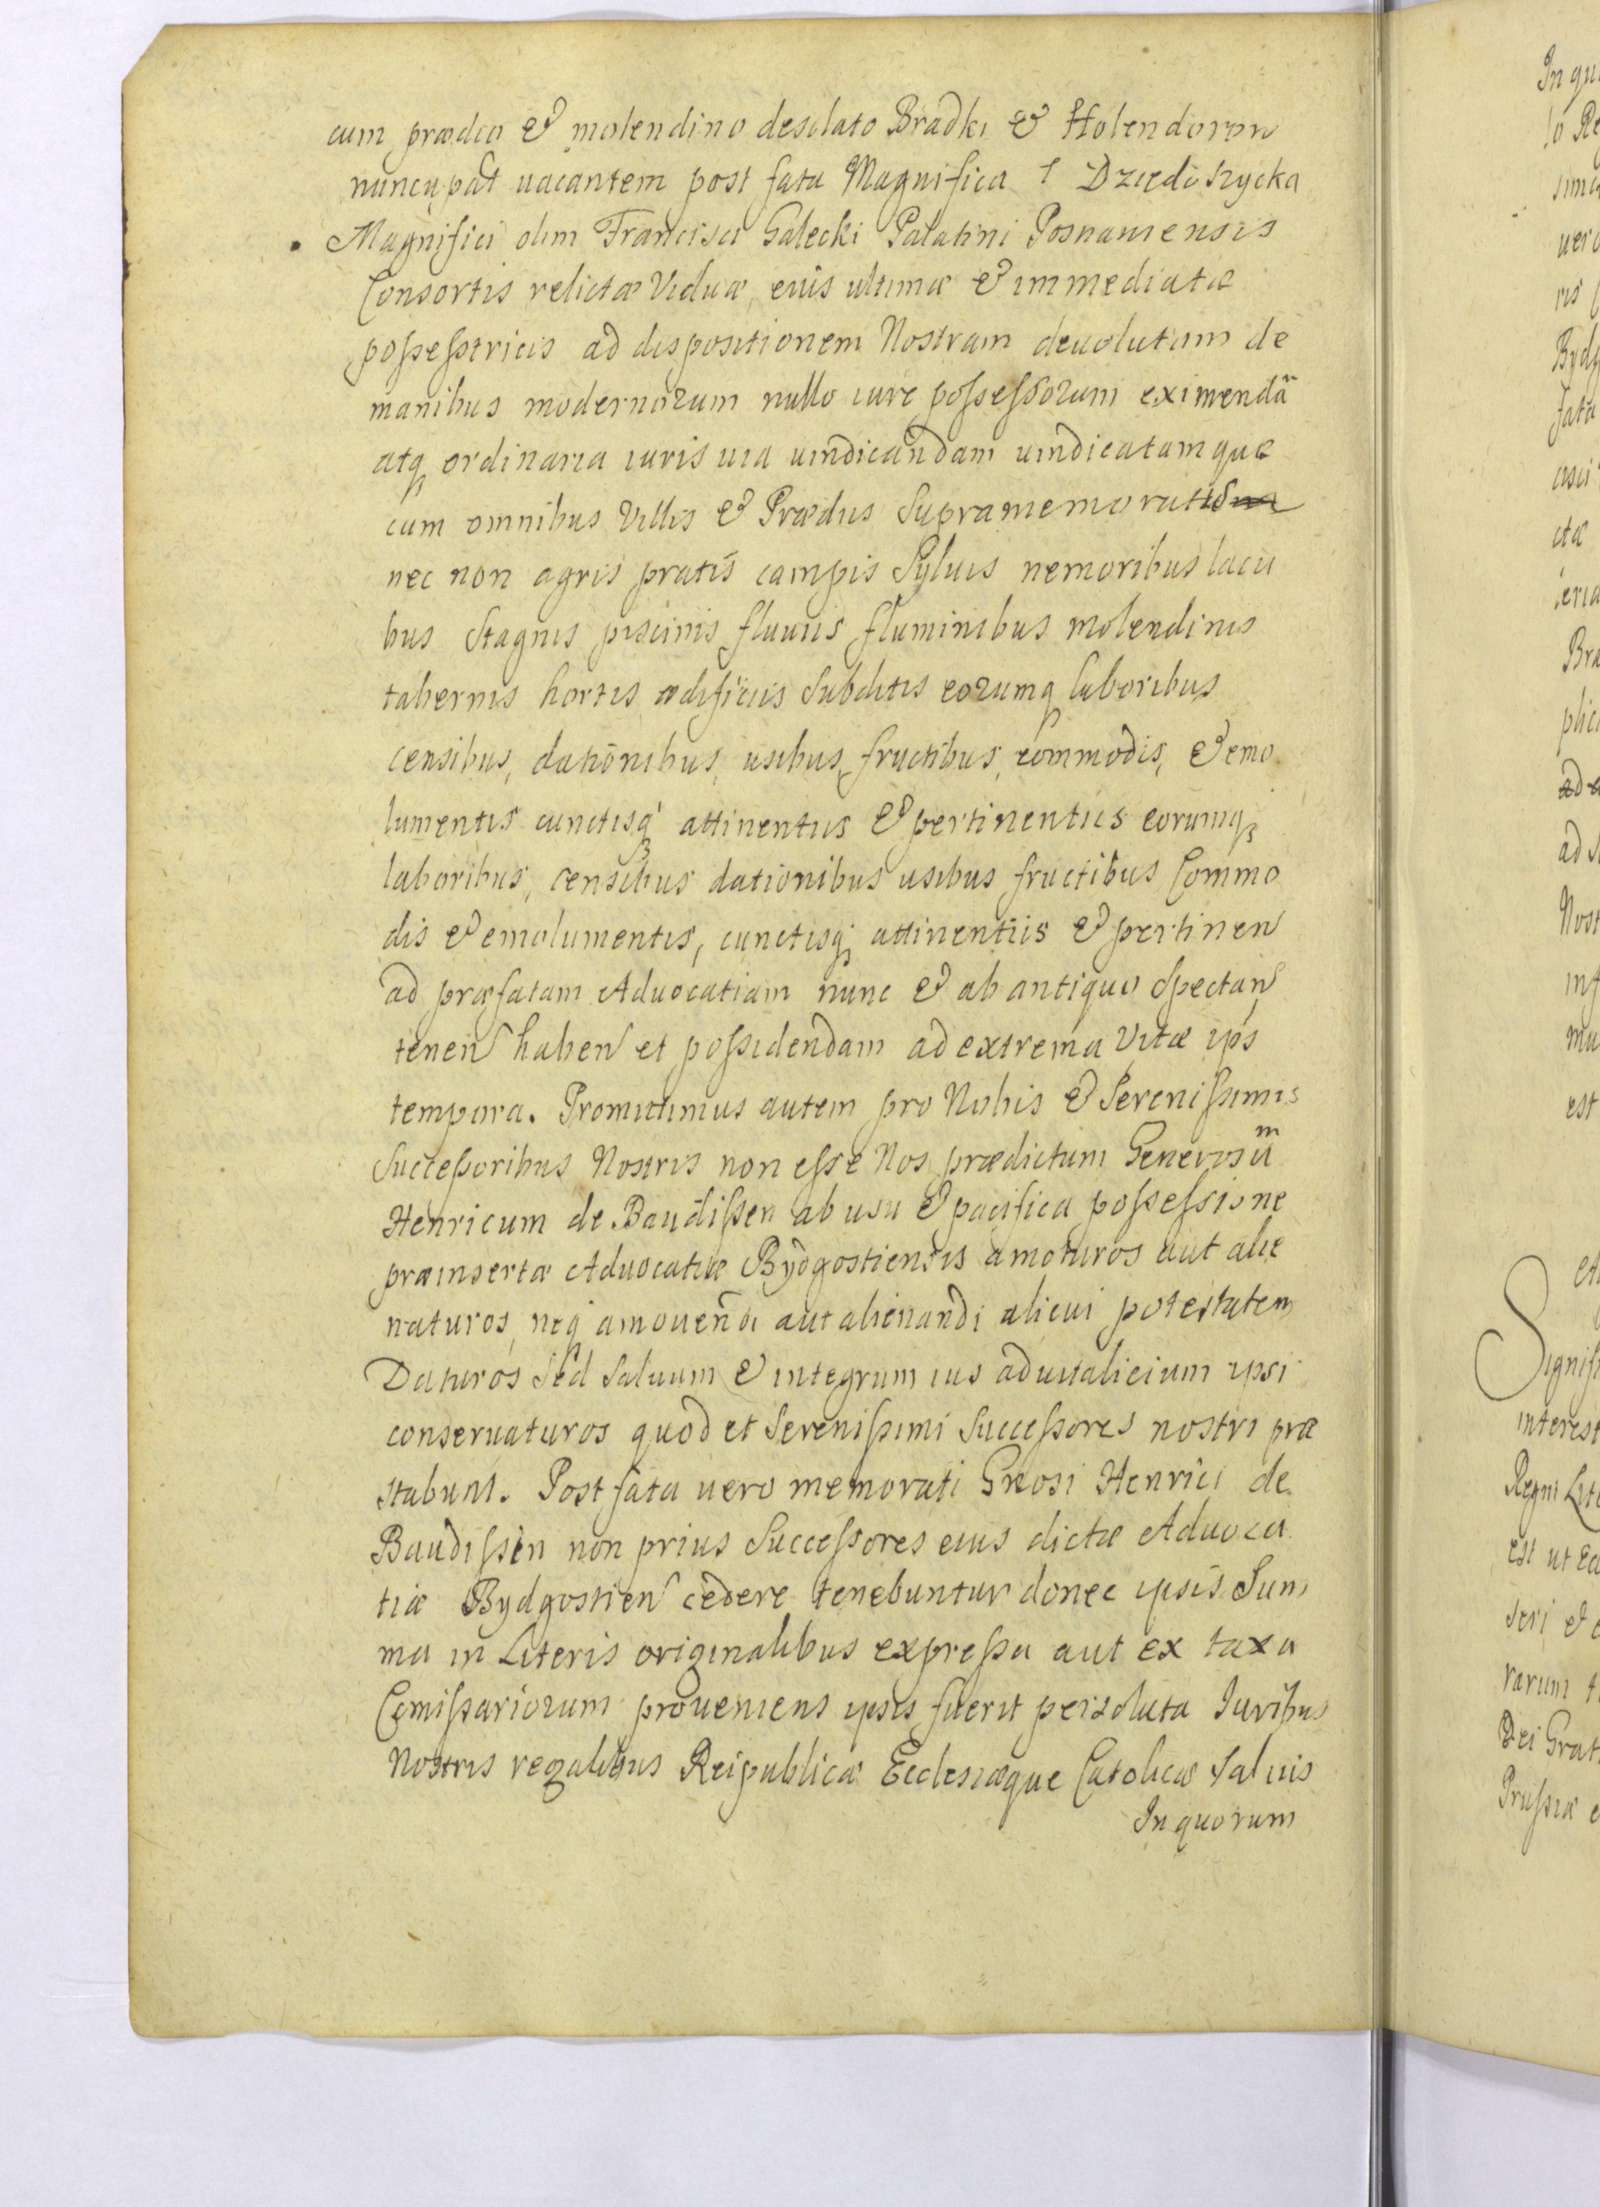 cum prædio & molendino desolato Bradki & Holendorow
nuncupat vacantem post fata Magnificæ † Dziedoszycka
Magnifici olim Francisci Galecki Palatini Posnaniensis
Consortis relictæ Viduæ, eius ultimæ & immediatæ
possestricis ad dispositionem Nostram devolutam de
manibus modernorum nullo iure possessorum eximendã
atq ordinaria iuris via vindicandam vindicatamque
cum omnibus Villis & Prædiis Supramemoratis
nec non agris pratis campis Sylvis nemoribus lacu
bus Stagnis piscinis fluviis fluminibus molendinis
tabernis hortis ædificiis Subditis eorumq laboribus
censibus, dationibus, usibus, fructibus, commodis, & emo
lumentis cunctisq attinentiis & pertinentiis eorumq
laboribus, censibus dationibus usibus fructibus Commo
dis & emolumentis, cunctisq attinentiis & pertinen
ad præfatam Advocatiam nunc & ab antiquo Spectan
tenen haben et possidendam ad extrema Vitæ ips
tempora. Promittimus autem pro Nobis & Serenissimis
Successoribus Nostris non esse Nos prædictum Generosũm
Henricum de Baudissen ab usu & pacifica possessione
præinsertæ Advocatiæ Bydgostiensis amoturos aut alie
naturos, neq amovendi aut alienandi alicui potestatem
Daturos Sed Salvum & integrum ius advitalicium ipsi
conservaturos quod et Serenissimi Successores nostri præ
stabunt. Post fata vero memorati Gnosi Henrici de
Baudissen non prius Successores eius dictæ Advoca
tiæ Bydgostien cedere tenebuntur donec ipsis Sum
ma in Literis originalibus expressa aut ex taxa
Comissariorum proveniens ipsis fuerit persoluta Iuribus
Nostris regalibus Reipublicæ Ecclesiæque Catolicæ Salvis
In quorum